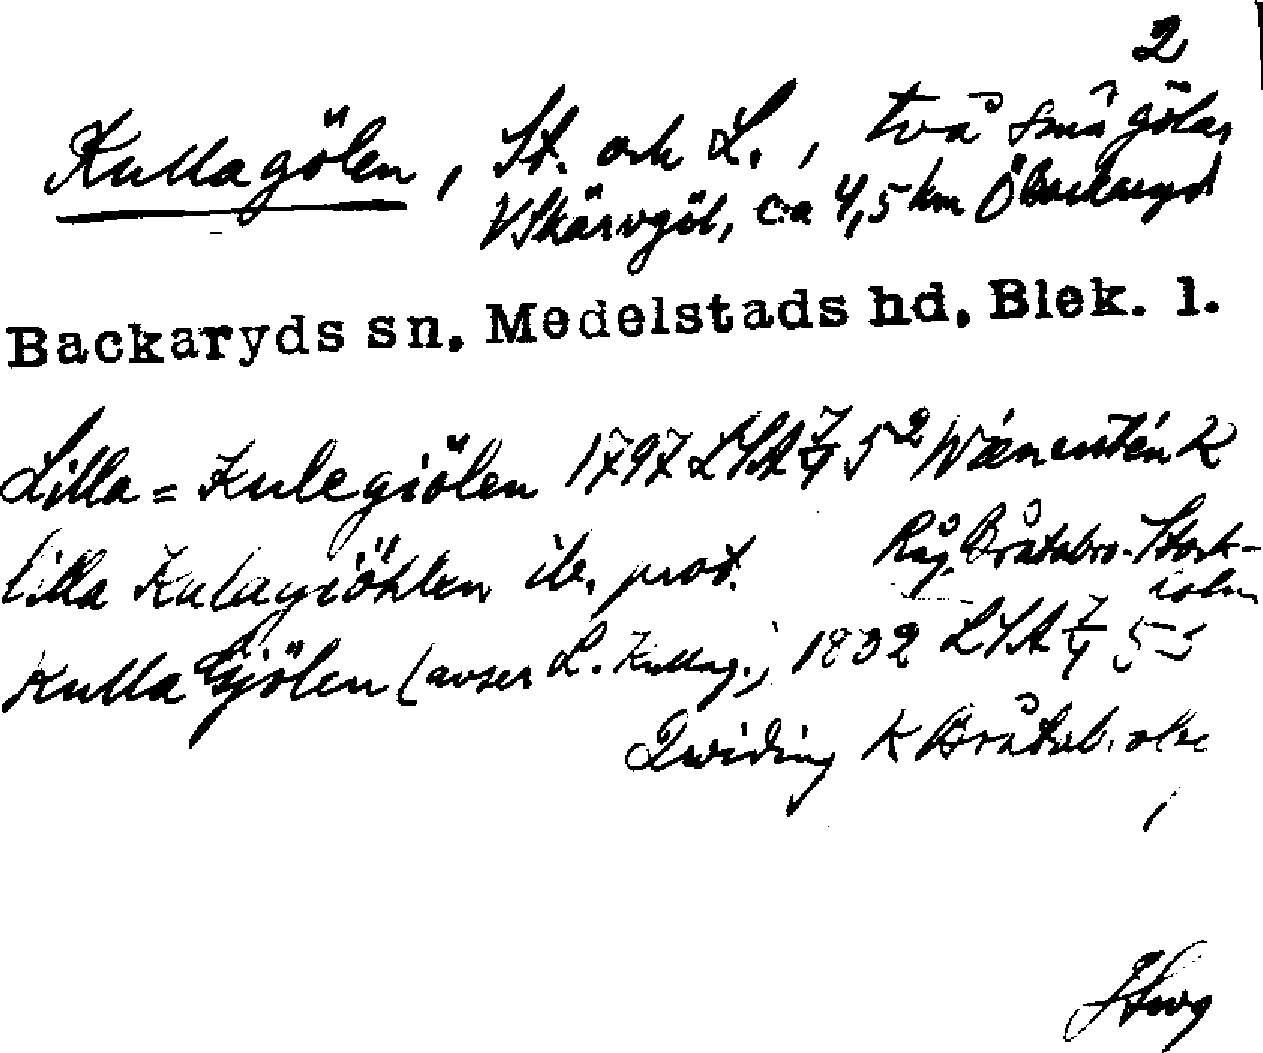 2
Kullagölen, St. och L., två små gölar
V Skärvgöl, ca 4,5 km Ö Backaryd
Backaryds sn. Medelstads hd. Blek. l.
Lilla = Kulegiölen 1797 LSA 7/4 5² Wænerstén K
lilla Kulagiöhlen ib. prot. Råg. Bråtabro-Stock-
holm
Kulla Gjölen (avser L. Kullag.) 1832 LSA 7/4 5
Qwiding K Bråtab.